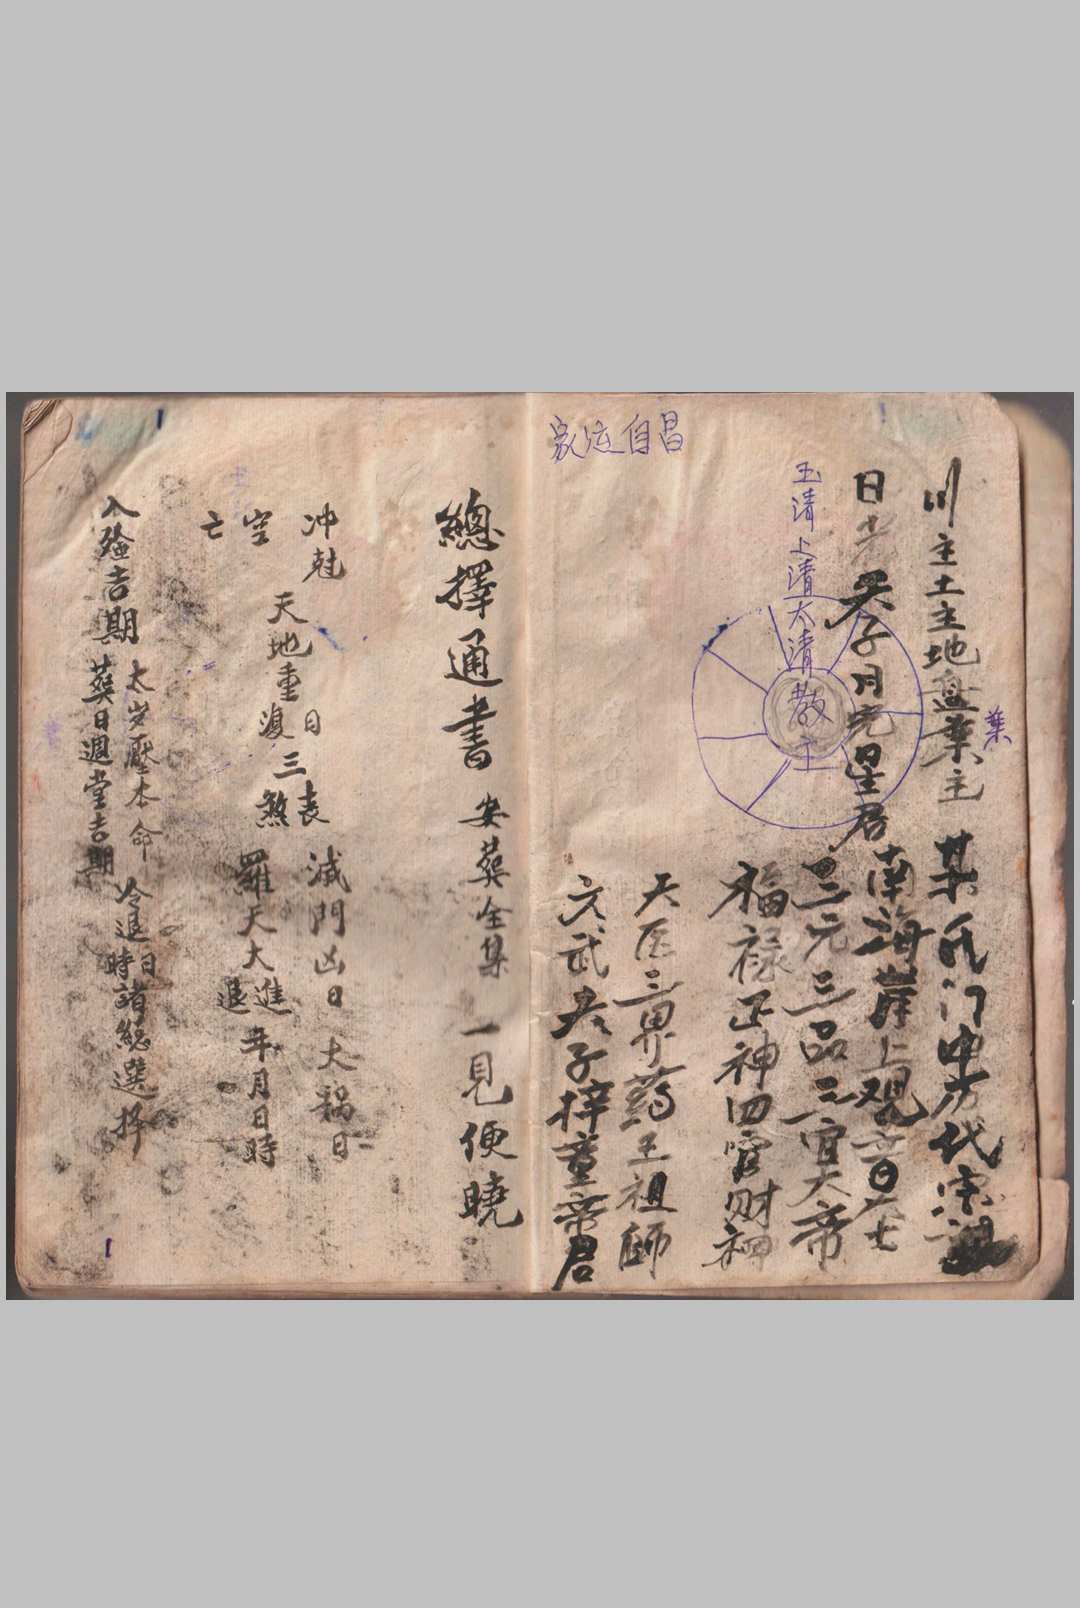 川主土主地盘葉主 某氏门中历代宗祖
葉
日光天子月光星君 南海岸上观音大士
玉清上清太清教主
三元三品三官大帝
福禄正神四官财神
天医三界药王祖師
文武夫子梓童帝君
自昌
總擇通書 安葬全集 一見便曉
冲尅 天地重復日 三喪煞 滅門凶日 大禍日
空亡 羅天大進退 年月日時
太岁壓本命 冷退日時諸總選择
入殮吉期 葬日週堂吉期